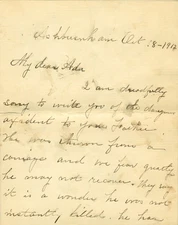 Ashburnham Oct. 8-1912
My dear Ada
I am dreadfully
sorry to write you of the
accident to your Father.
He was thrown from a
carriage and we fear greatly
he may not recover. They say
it is a wonder he was not
instantly killed. he has